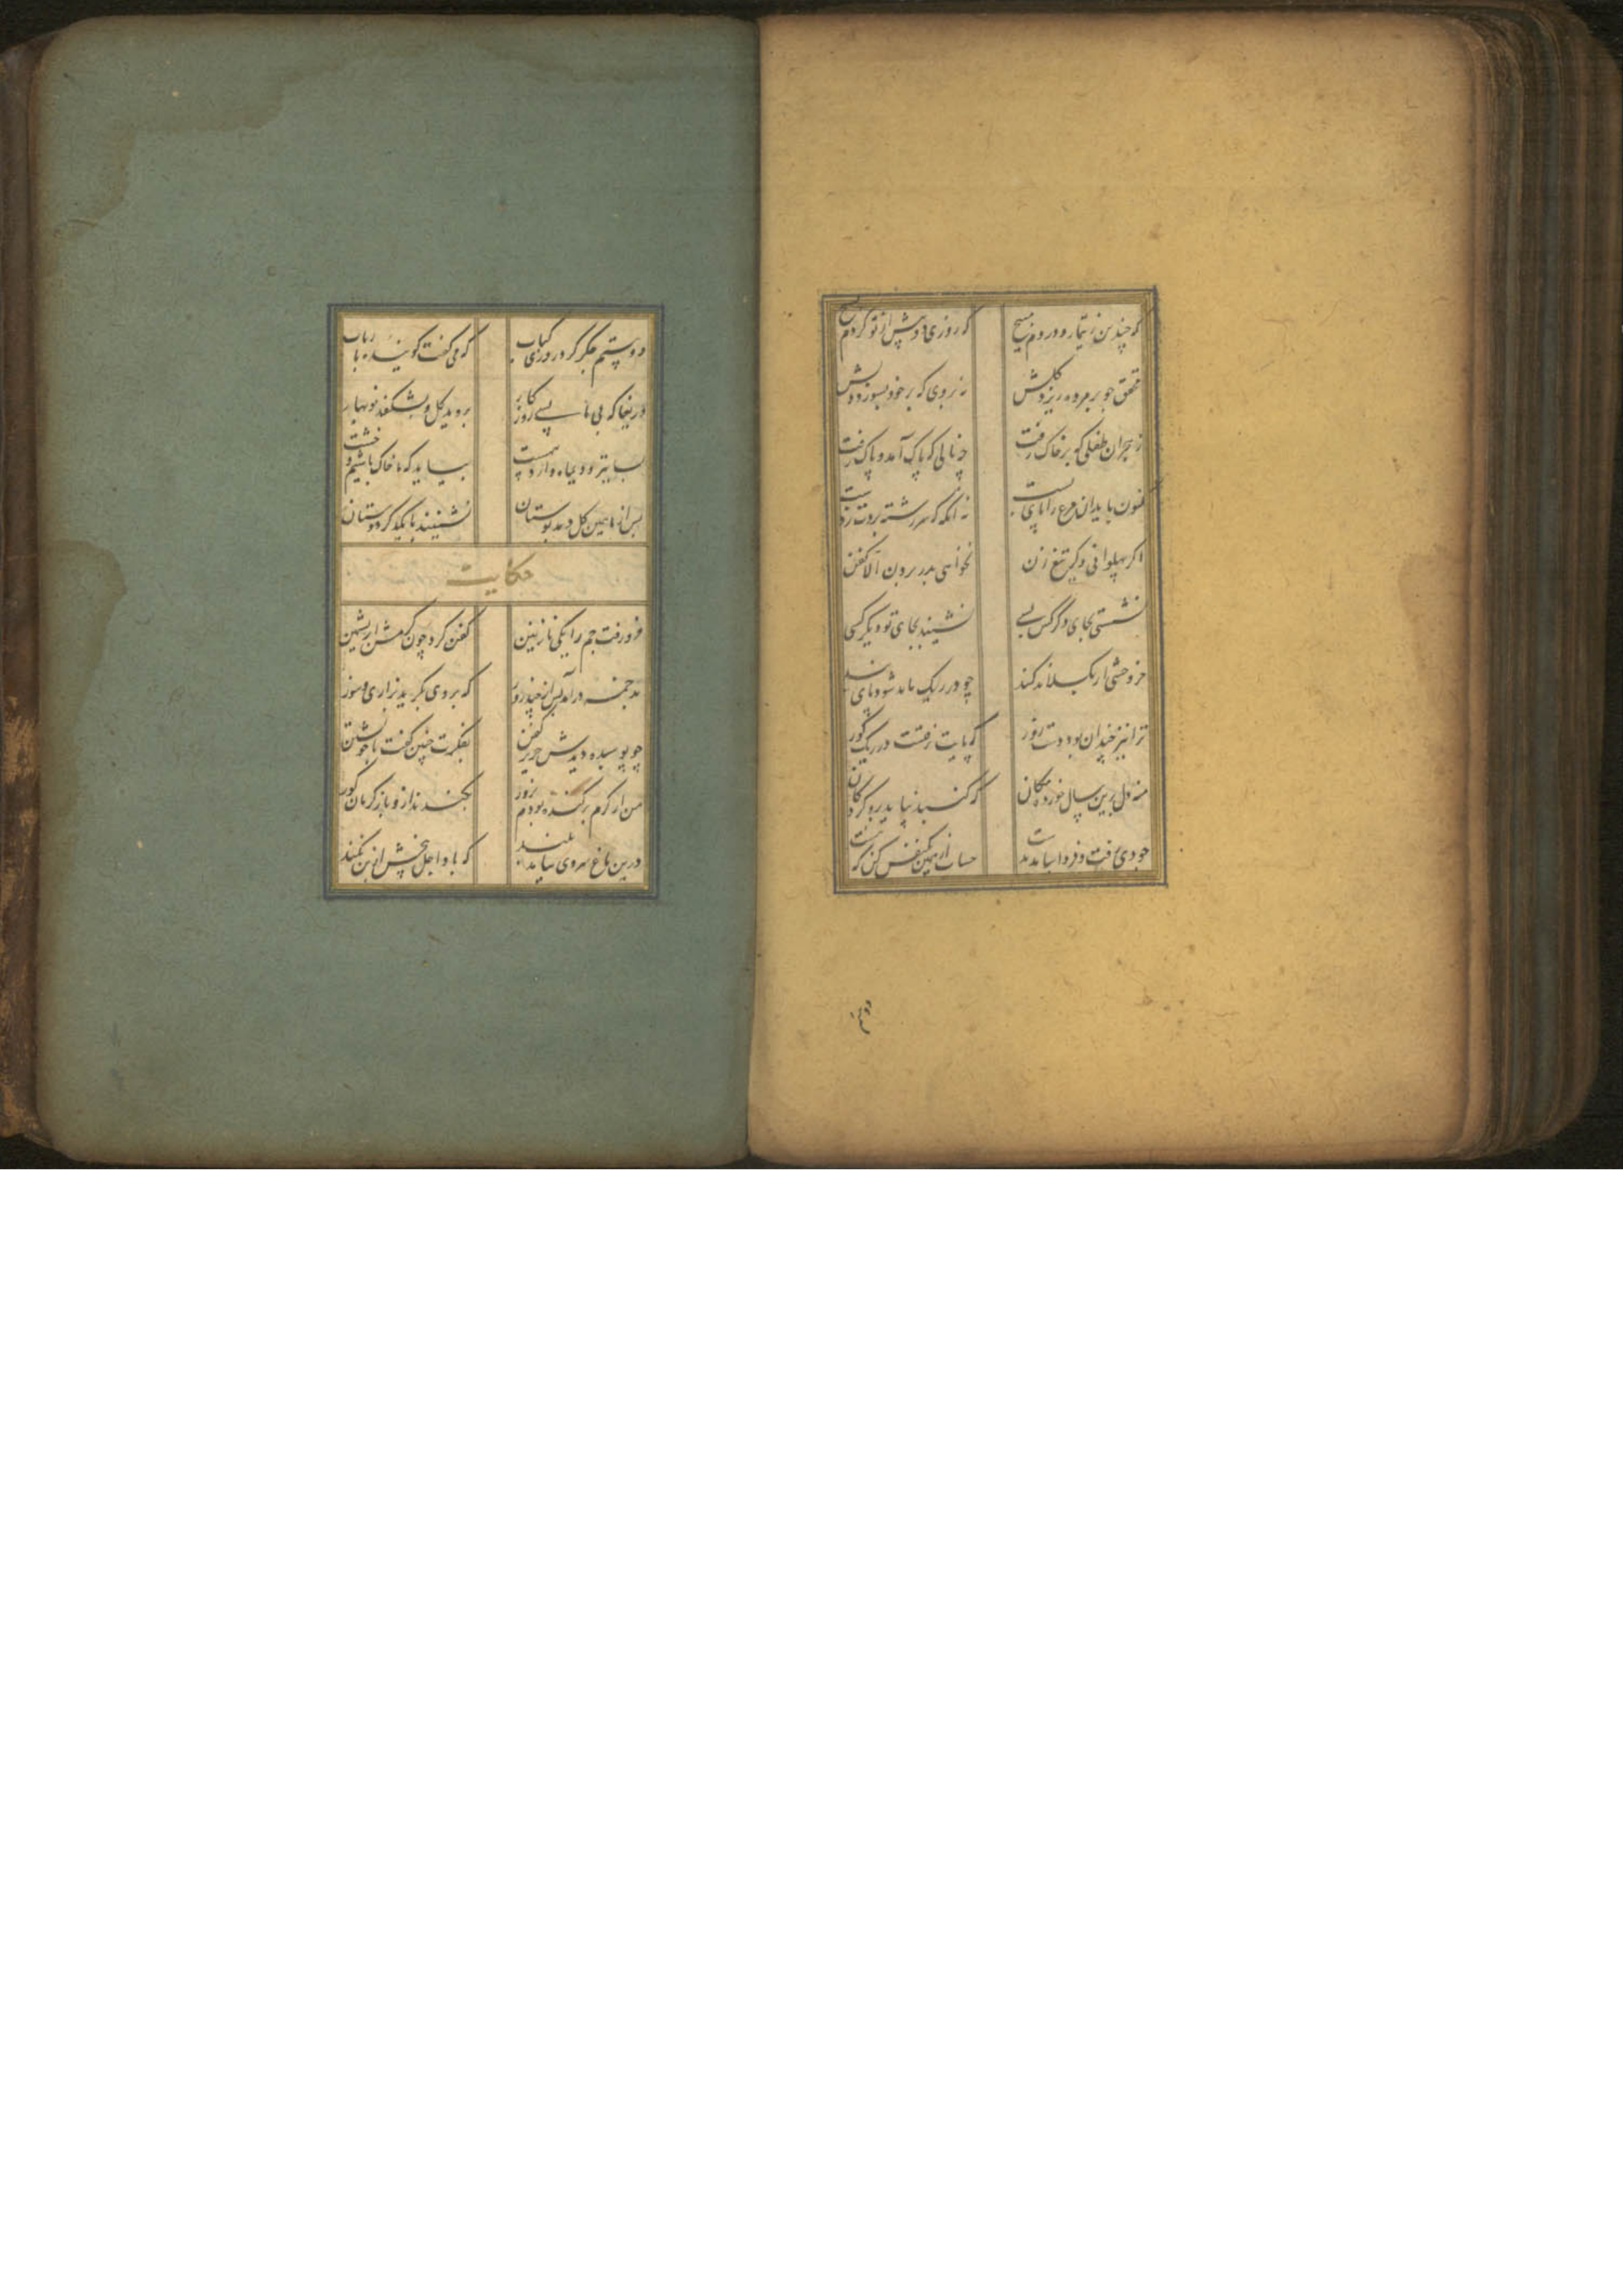 که چندین ز تیمار و دردم مپیچ که روزی دو پیش از تو کردم بسیچ
محقق چو بر مرده ریزد گلش نه بر وی که بر خود بسوزد دلش
ز هجران طفلی که بر خاک رفت چه نالی که پاک آمد و پاک رفت
کنون باید این مرغ را پای بست نه آنگه که سررشته بردت ز دست
اگر پهلوانی و گر تیغ زن نخواهی بدر بردن الا کفن
نشستی بجای دگر کس بسی نشیند بجای تو دیگر کسی
خر وحشی ار بگسلاند کمند چو در ریگ ماند شود پای بند
ترا نیز چندان بود دست زور که پایت نرفتست در ریگ گور
منه دل برین سال خورده مکان که گنبد نپاید برو گردکان
چو دی رفت و فردا نیامد بدست حساب از همین یک نفس کن که هست
فرو رفت
دو بیتم جگر کرد روزی کباب که می گفت گوینده با رباب
دریغا که بی ما بسی روزگار بروید گل و بشکفد نوبهار
بسا تیر و دیماه و اردیبهشت بیاید که ما خاک باشیم و خشت
پس از ما همین گل دمد بوستان نشینند با یکدگر دوستان
حکایت
فرو رفت جم را یکی نازنین کفن کرد چون کرمش ابریشمین
بدخمه درآمد پس از چند روز که بر وی بگرید بزاری و سوز
چو پوسیده دیدش حریر کفن بفکرت چنین گفت با خویشتن
من از کرم برکنده بودم بزور بکندند ازو باز کرمان گور
درین باغ سروی نیامد بلند که باد اجل بیخش از بن نکند